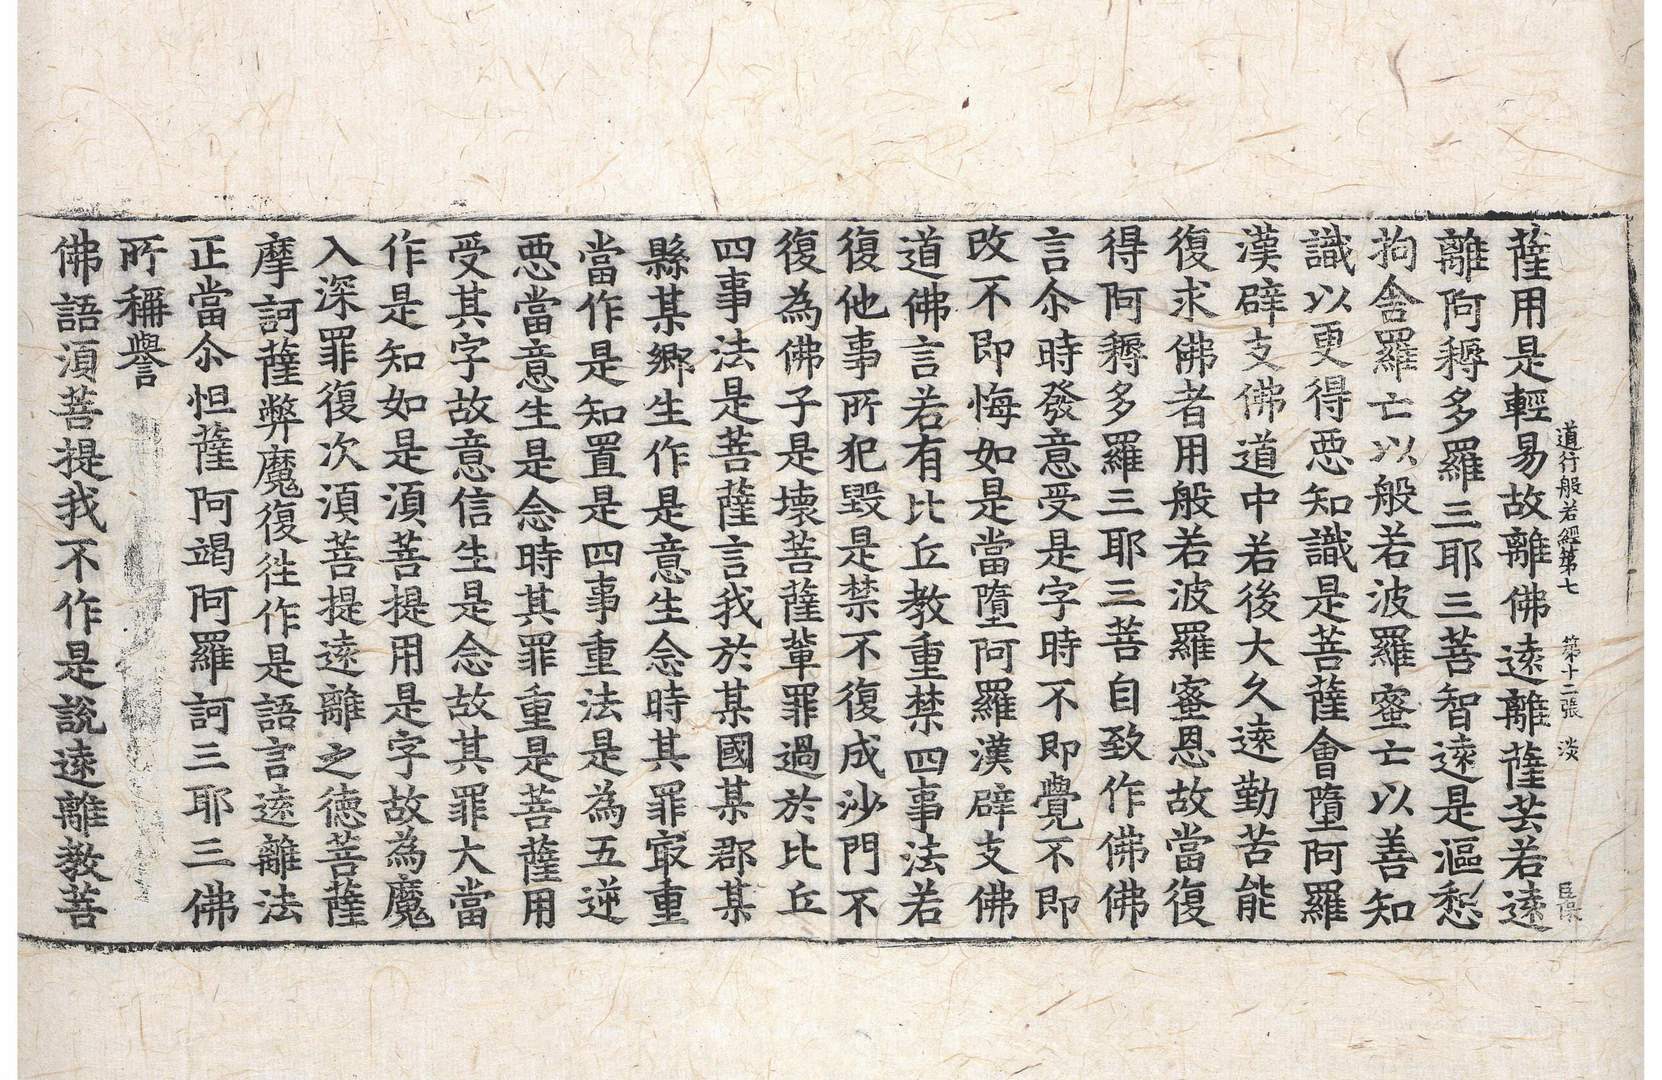 道行般若經第七 第十二張 淡
薩用是輕易故離佛遠離薩芸若遠
離阿耨多羅三耶三菩智遠是漚惒
拘舍羅亡以般若波羅蜜亡以善知
識以更得惡知識是菩薩會墮阿羅
漢辟支佛道中若後大久遠勤苦能
復求佛者用般若波羅蜜恩故當復
得阿耨多羅三耶三菩自致作佛佛
言尒時發意受是字時不即覺不即
改不即悔如是當墮阿羅漢辟支佛
道佛言若有比丘教重禁四事法若
復他事所犯毀是禁不復成沙門不
復為佛子是壞菩薩輩罪過於比丘
四事法是菩薩言我於某國某郡某
縣某鄉生作是意生念時其罪㝡重
當作是知置是四事重法是為五逆
惡當意生是念時其罪重是菩薩用
受其字故意信生是念故其罪大當
作是知如是須菩提用是字故為魔
入深罪復次須菩提遠離之德菩薩
摩訶薩弊魔復往作是語言遠離法
正當尒怛薩阿竭阿羅訶三耶三佛
所稱譽
佛語須菩提我不作是說遠離教菩